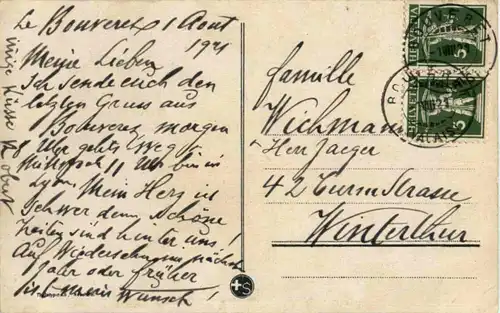 Le Bouveret 1 Aout
1921
Meine Lieben
Ich sende euch den
letzten Gruss aus
Bouveret morgen
Uhr gehts weg
11 Uhr bin in
Mein Herz ist
schwer denn schöne
Zeiten sind hinter uns!
Auf Wiedersehn nächstes
Jahr oder früher
ist mein Wunsch!
viele Küsse Robert
Famille
Wichmann
Herr Jaeger
42 Turm Strasse
Winterthur
HELVETIA
5
BOUVERET
HELVETIA
5
BOUVERET
VALAIS
+S